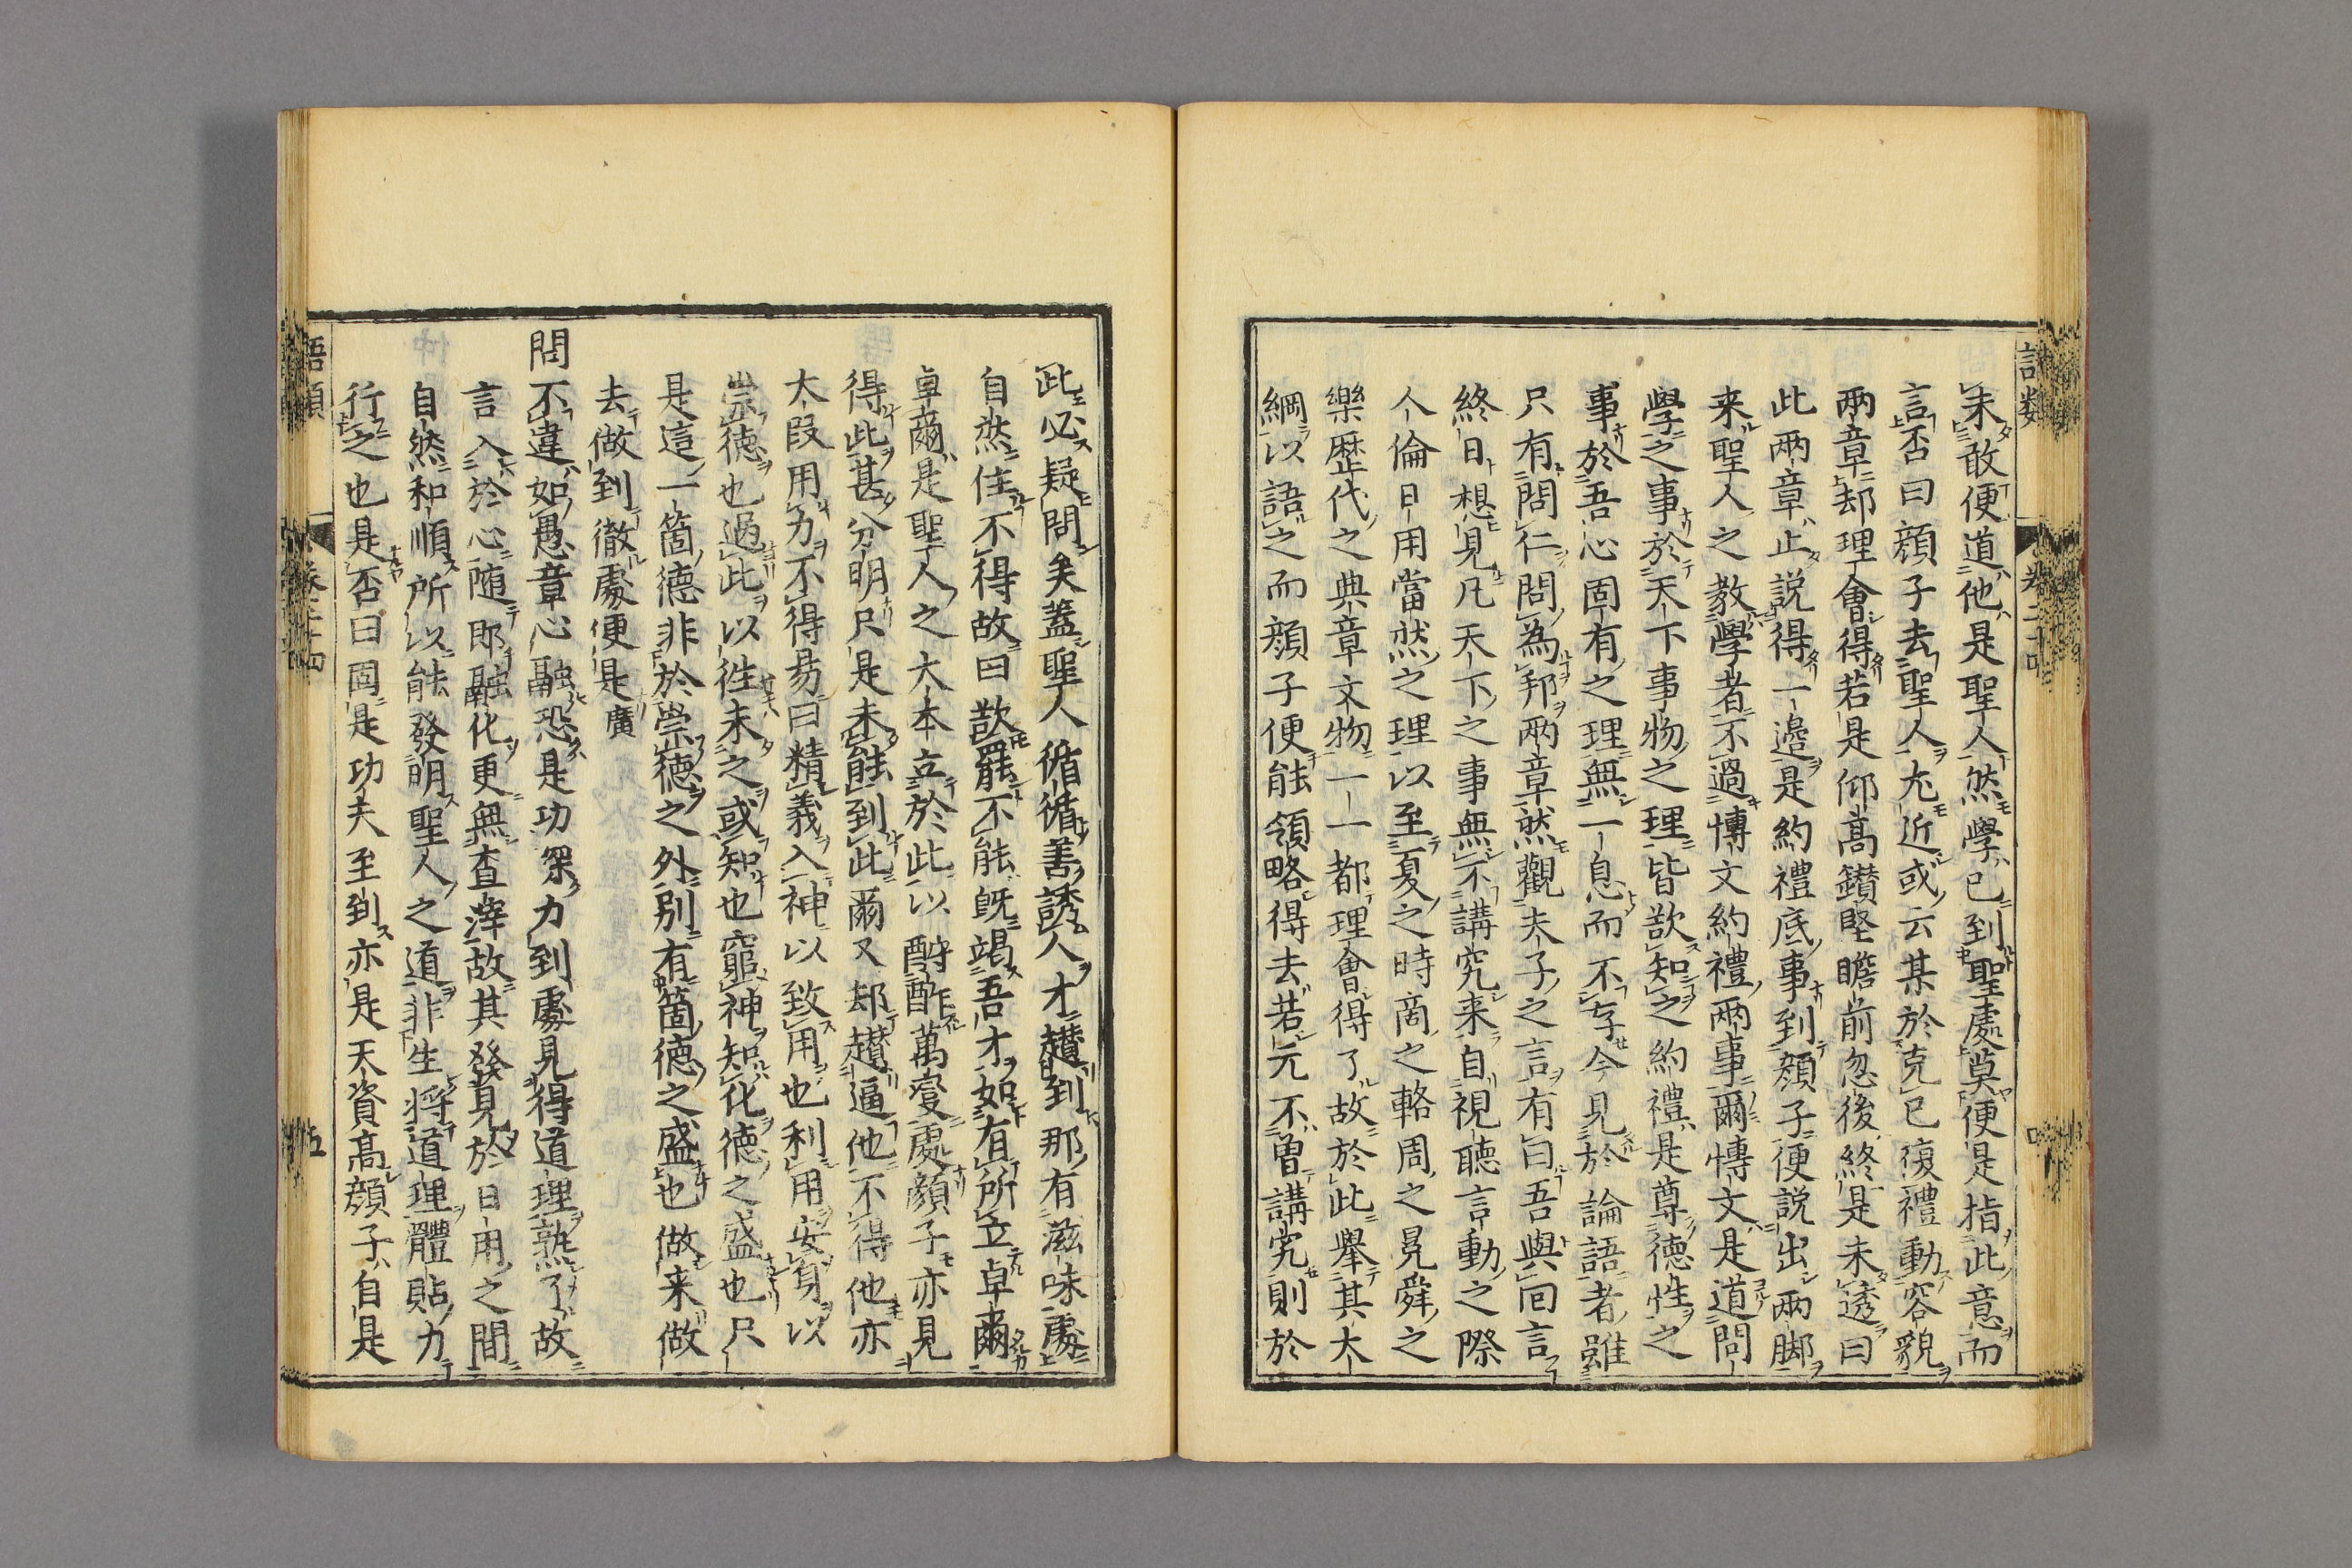 未敢便道他是聖人然學已到聖處莫便是指此意而
言否曰顔子去聖人尤近或云某於克已復禮動容貌
兩章却理會得若是仰高鑚堅瞻前忽後終是未透曰
此兩章止説得一邉是約禮底事到顔子便説出兩脚
来聖人之教學者不過博文約禮兩事爾博文是道問
學之事於天下事物之理皆欲知之約禮是尊德性之
事於吾心固有之理無一息而不存今見於論語者雖
只有問仁問為邦兩章然觀夫子之言有曰吾與回言
終日想見凡天下之事無不講究来自視聽言動之際
人倫日用當然之理以至夏之時商之輅周之冕舜之
樂歷代之典章文物一一都理會得了故於此舉其大
綱以語之而顔子便能領略得去若元不曽講究則於
此必疑問矣蓋聖人循循善誘人才趲到那有滋味處
自然住不得故曰欲罷不能既竭吾才如有所立卓爾
卓爾是聖人之大本立於此以酧酢萬變處顔子亦見
得此甚分明只是未能到此爾又却趲逼他不得他亦
太段用力不得昜曰精義入神以致用也利用安身以
崇德也過此以徃未之或知也窮神知化德之盛也只
是這一箇德非於崇德之外別有箇德之盛也做来做
去做到徹處便是廣
問不違如愚章心融恐是功深力到處見得道理熟了故
言入於心随即融化更無查滓故其發見於日用之間
自然和順所以能發明聖人之道非生將道理體貼力
行之也是否曰固是功夫至到亦是天資高顔子自是
語類
卷二十四
五